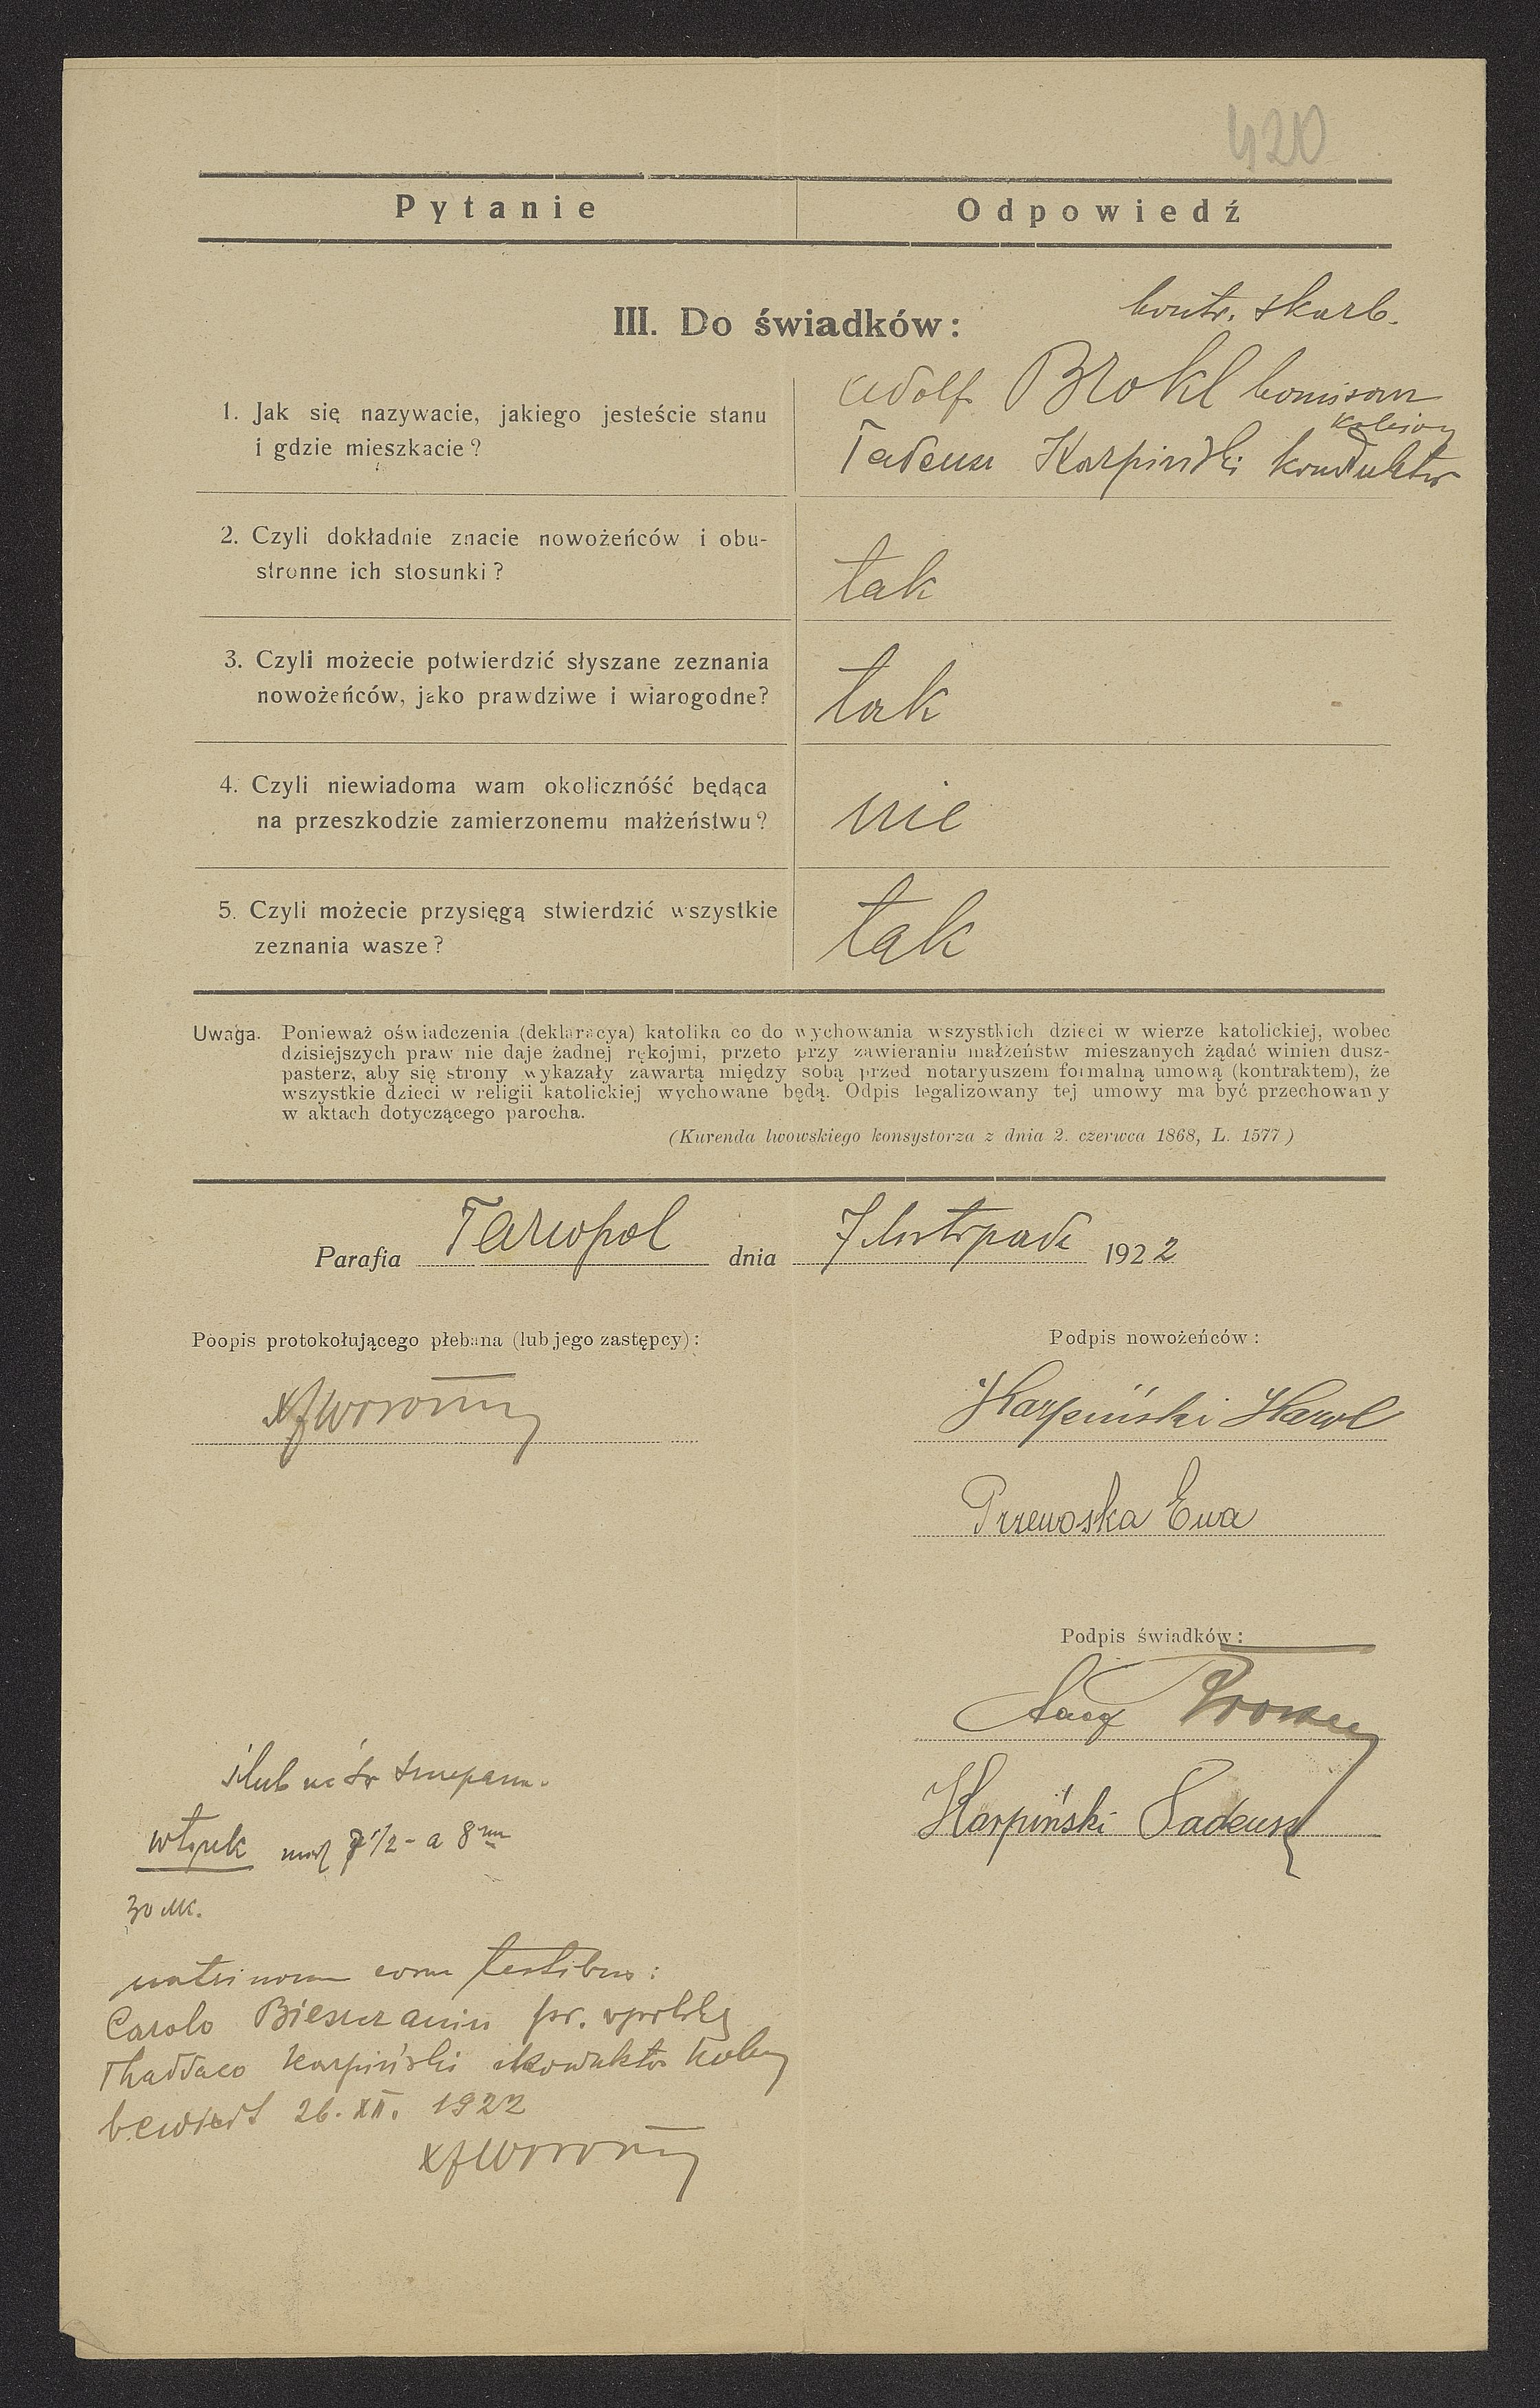 420
Pytanie Odpowiedź
kontr. skarb.
III. Do świadków:
1. Jak się nazywacie, jakiego jesteście stanu
i gdzie mieszkacie?
Adolf Brokl komisarz
kolejowy
Tadeusz Karpiński konduktor
2. Czyli dokładnie znacie nowożeńców i obu-
stronne ich stosunki?
tak
3. Czyli możecie potwierdzić słyszane zeznania
nowożeńców, jako prawdziwe i wiarogodne?
tak
4. Czyli niewiadoma wam okolicznóść będąca
na przeszkodzie zamierzonemu małżeństwu?
nie
5. Czyli możecie przysięgą stwierdzić wszystkie
zeznania wasze?
tak
Uwaga. Ponieważ oświadczenia (deklaracya) katolika co do wychowania wszystkich dzieci w wierze katolickiej, wobec
dzisiejszych praw nie daje żadnej rękojmi, przeto przy zawieraniu małżeństw mieszanych żądać winien dusz-
pasterz, aby się strony wykazały zawartą między sobą przed notaryuszem formalną umową (kontraktem), że
wszystkie dzieci w religii katolickiej wychowane będą. Odpis legalizowany tej umowy ma być przechowany
w aktach dotyczącego parocha.
(Kurenda lwowskiego konsystorza z dnia 2. czerwca 1868, L. 1577)
Parafia Tarnopol dnia 7 listopada 1922
Poopis protokołującego płebana (lub jego zastępcy):
Podpis nowożeńców:
Karpiński Karol
Przewoska Ewa
Podpis świadków:
Karpiński Tadeusz
ślub
wtorek 7 1/2 - a 8
30 Mk.
coram testibus:
Carolo
Thaddaeo Karpiński
26. XII. 1922